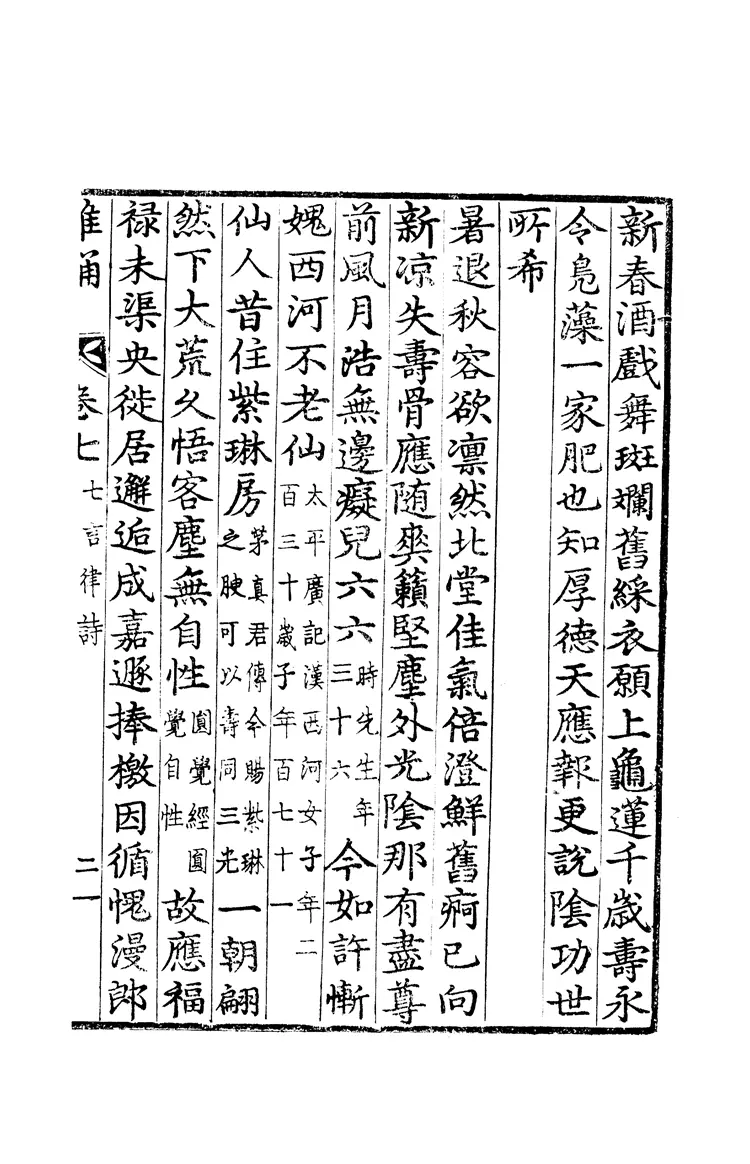 新春酒戲舞斑斕舊綵衣願上龜蓮千歲壽永
令鳧藻一家肥也知厚德天應報更說陰功世
所希
暑退秋容欲凛然北堂佳氣倍澄鮮舊痾已向
新凉失壽骨應随爽籟堅塵外光陰那有盡尊
前風月浩無邊癡兒六六時先生年三十六今如許慚
媿西河不老仙太平廣記漢西河女子年二百三十歲子年百七十一
仙人昔住紫琳房茅真君傳今賜紫琳之腴可以壽同三光一朝翩
然下大荒久悟客塵無自性圓覺經圓覺自性故應福
禄未渠央徙居邂逅成嘉遯捧檄因循愧漫郎
卷七 七言律詩 二一